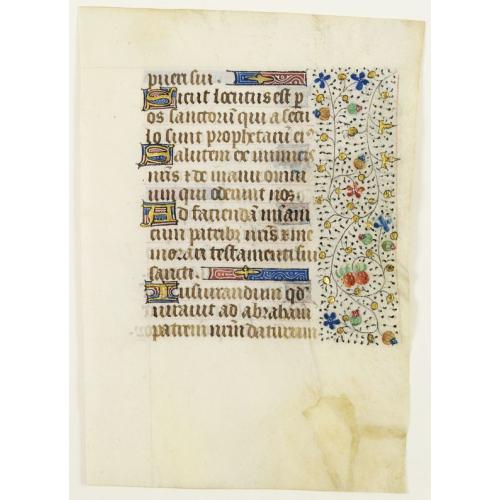 pueri sui.
Sicut locutus est p̲
os sanctorū qui a secu
lo sunt prophetarū ei⁹
Salutem ex inimicis
nr̄is ⁊ de manu omniū
um qui oderunt nos.
Ad faciendā mīam
cum patrib; nr̄is ⁊ me
morari testamenti sui
sancti.
Iusiurandum qd̄
iurauit ad abraham
patrem nr̄m daturum